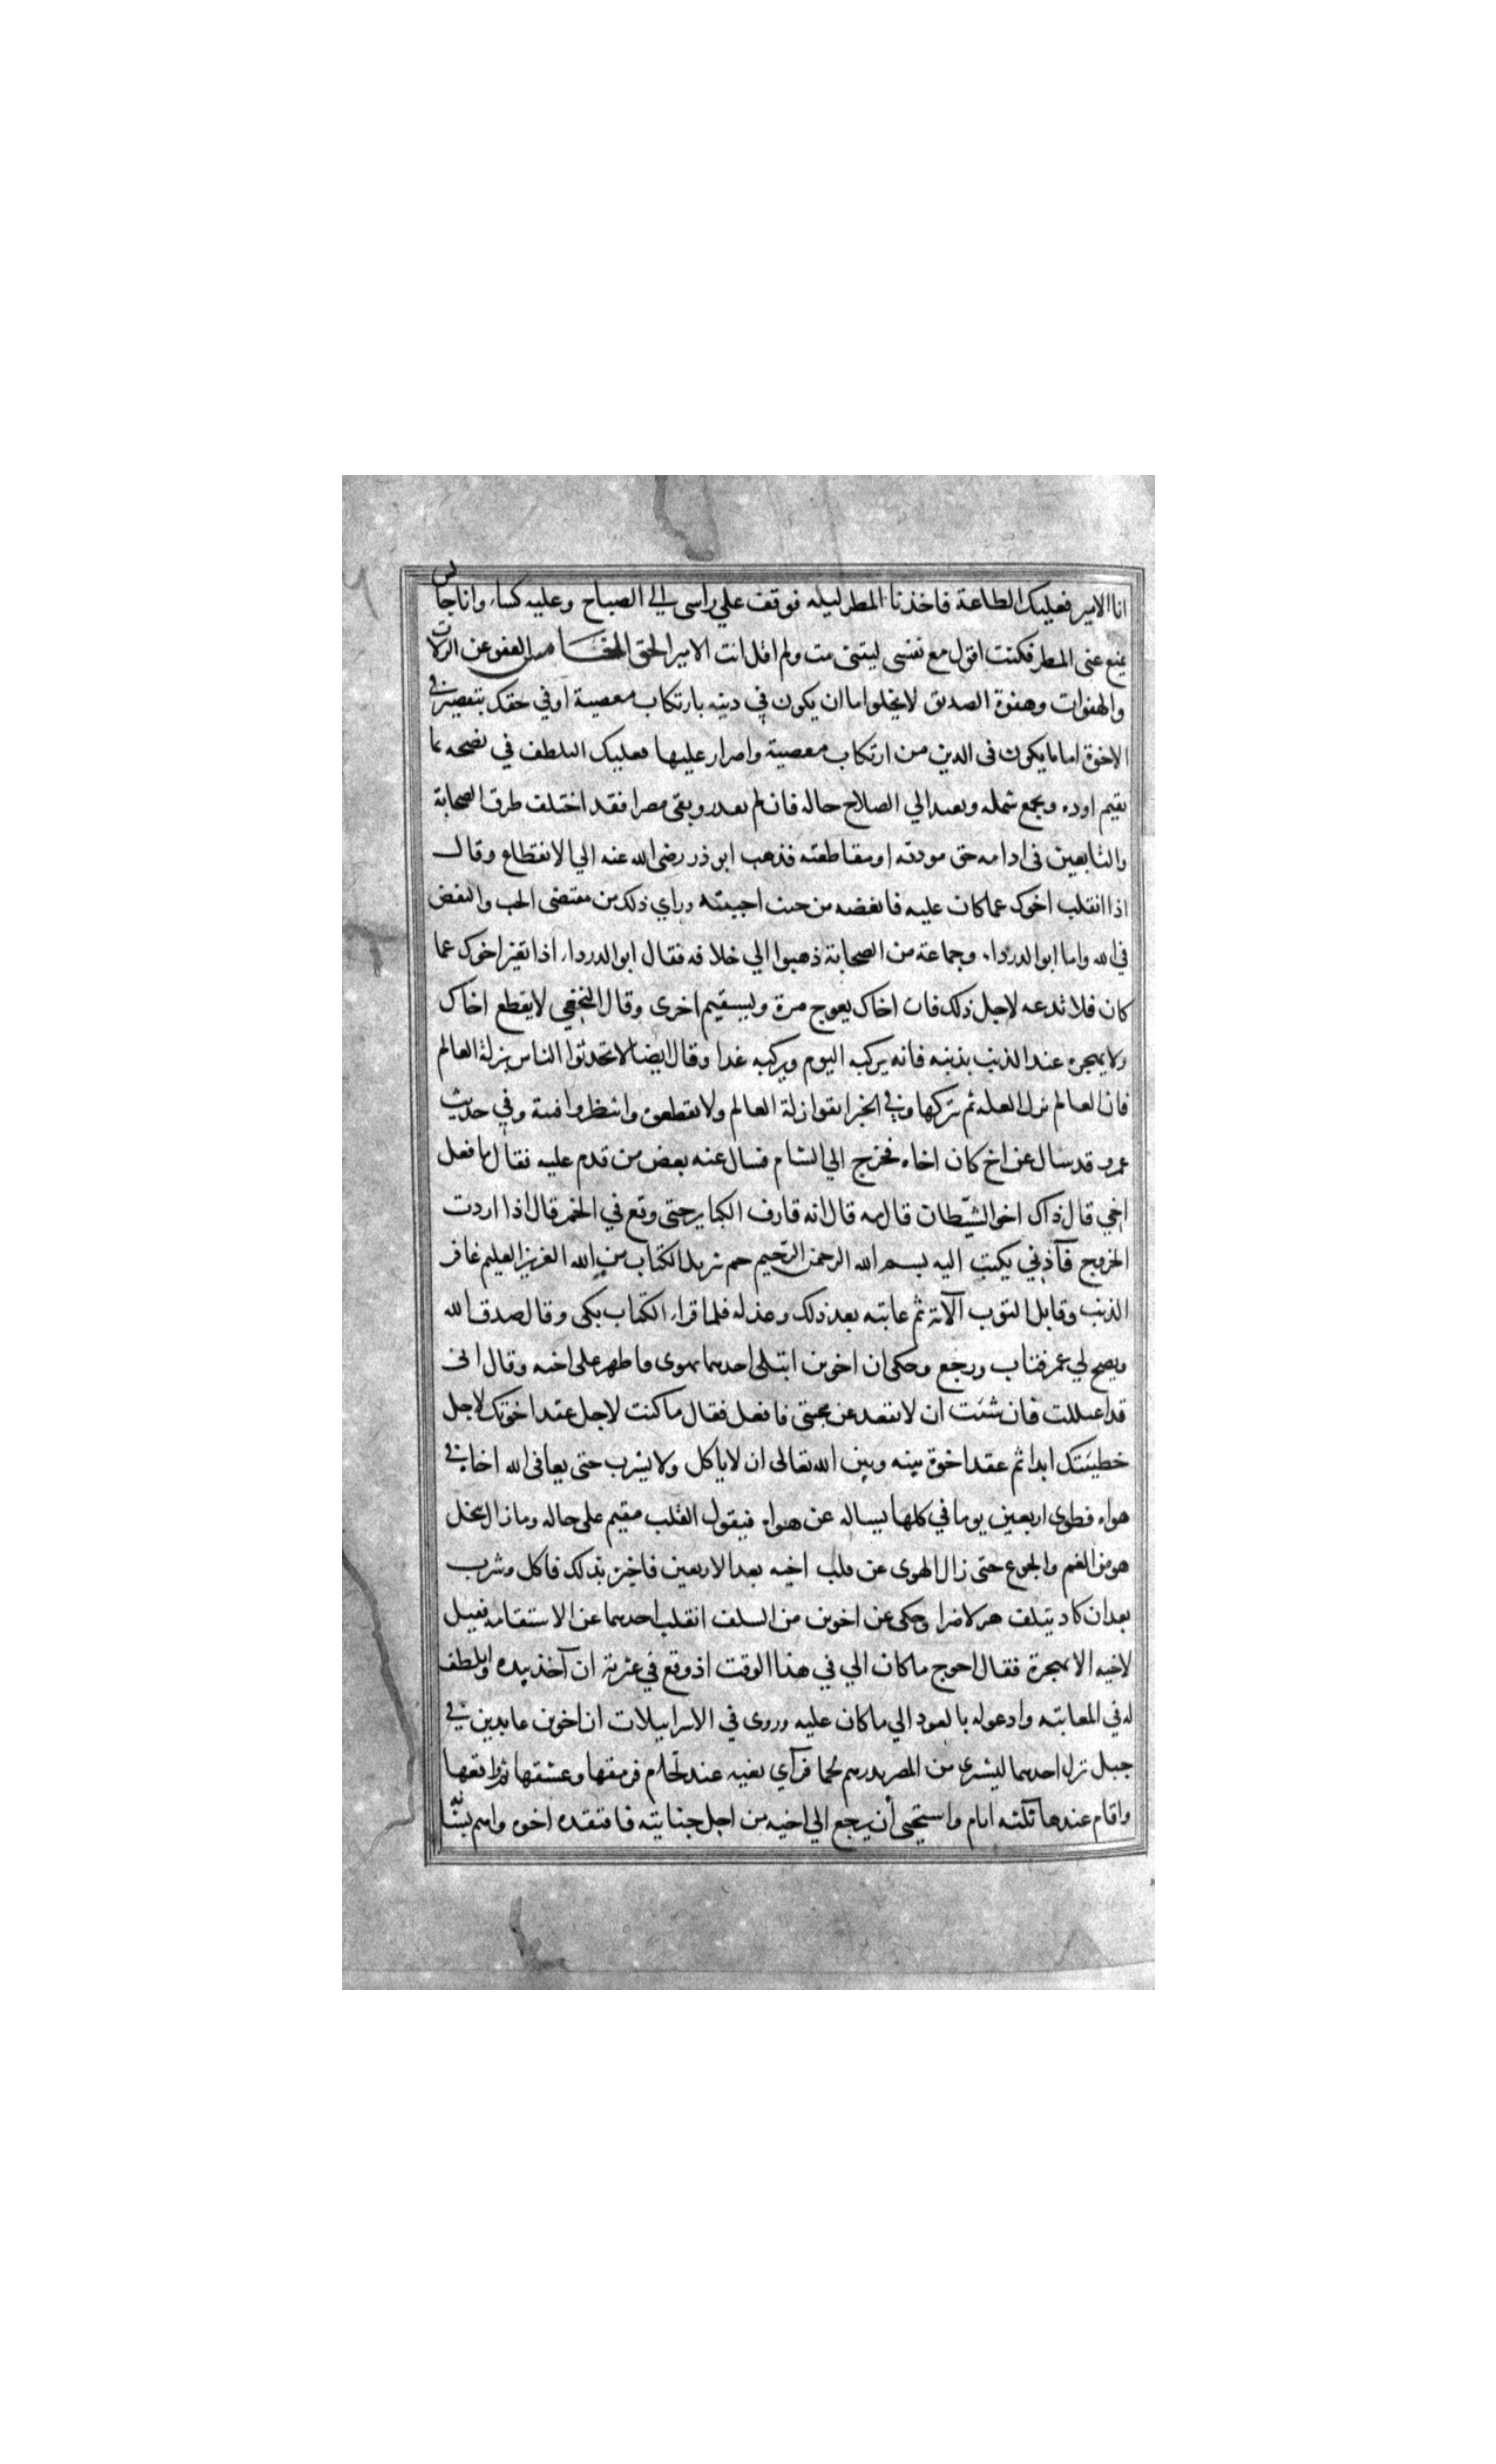 انا الامير فعليك الطاعة فاخذنا المطر ليله فوقف علي راسى الي الصباح وعليه كساء وانا جالس
يمنع عنى المطر فكنت اقول مع نفسى ليتنى مت ولم اقل انت الامير الحق الخامس العفو عن الزلات
والهفوات وهفوة الصديق لا يخلوا اما ان يكون في دينه بارتكاب معصية او في حقك بتقصيره في
الاخوة اما ما يكون فى الدين من ارتكاب معصية واصرار عليها فعليك التلطف في نصحه بما
يقيم اوده ويجمع شمله ويعيد الي الصلاح حاله فان لم يقدر وبقى مصرا فقد اختلف طرق الصحابة
والتابعين فى ادامه حق مودته او مقاطعته فذهب ابو ذر رضى الله عنه الي الانقطاع وقال
اذا انقلب اخوك عما كان عليه فابغضه من حيث احببته وراي ذلك من مقتضى الحب والبغض
في الله واما ابو الدرداء وجماعة من الصحابة ذهبوا الي خلافه فقال ابو الدرداء اذا تغير اخوك عما
كان فلا تدعه لاجل ذلك فان اخاك يعوج مرة ويستقيم اخرى وقال النخعي لا يقطع اخاك
ولا يهجره عند الذنب بذنبه فانه يركبه اليوم ويتركه غدا وقال ايضا لا تحدثوا الناس بزلة العالم
فان العالم يزل الزلة ثم يتركها وفي الخبر اتقوا زلة العالم ولا تقطعوه وانتظروا فيئته وفي حديث
عمر قد سال عن اخ كان اخاه فخرج الي الشام فسال عنه بعض من قدم عليه فقال ما فعل
اخي قال ذاك اخو الشيطان قال مه قال انه قارف الكباير حتى وقع في الخمر قال اذا اردت
الخروج فآذني يكتب اليه بسم الله الرحمن الرحيم حم تنزيل الكتاب من الله العزيز العليم غافر
الذنب وقابل التوب الآية ثم عاتبه بعد ذلك وعذله فلما قراء الكتاب بكى وقال صدق الله
ونصح لي عمر فتاب ورجع وحكى ان اخوين ابتلى احدهما بهوى فاظهر على اخيه وقال انى
قد اعتللت فان شئت ان لا تعقد عن محبتى فافعل فقال ما كنت لاجل عقد اخوتك لاجل
خطيئتك ابدا ثم عقد اخوة بينه وبين الله تعالى ان لا ياكل ولا يشرب حتى يعافى الله اخاه في
هواه فطوى اربعين يوما في كلها يساله عن هواه فيقول القلب مقيم على حاله وما زال ينحل
هو من الغم والجوع حتى زال الهوى عن قلب اخيه بعد الاربعين فاخبره بذلك فاكل وشرب
بعد ان كاد يتلف هزلا ضرا وحكى عن اخوين من السلف انقلب احدهما عن الاستقامه فقيل
لاخيه الا تهجرة فقال احوج ما كان الي في هذا الوقت اذ وقع في عثرته ان آخذ بيده واتلطف
له في المعاتبه وادعوله بالعود الي ما كان عليه وروى في الاسرايليات ان اخوين عابدين في
جبل نزل احدهما ليشترى من المصر بدرهم لحما فرآي بغيه عند لحام فرمقها وعشقها ثم واقعها
واقام عندها ثلثه ايام واستحيى أن يرجع الي اخيه من اجل جنايته فافتقده اخوه واهتم بشانه